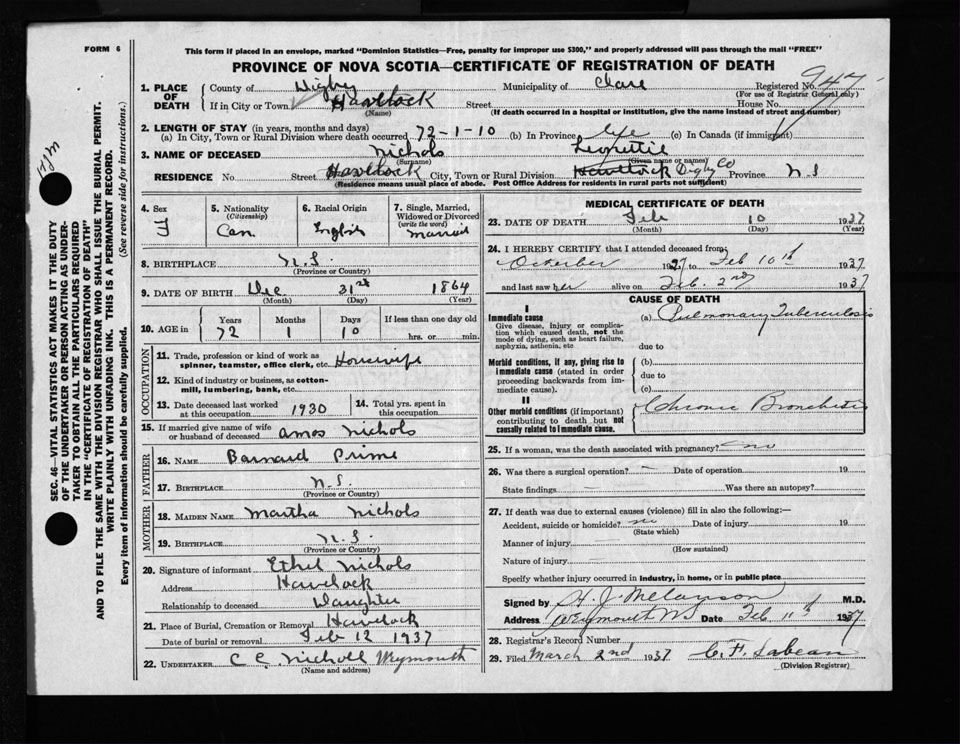 FORM 6
This form if placed in an envelope, marked "Dominion Statistics—Free, penalty for improper use $300," and properly addressed will pass through the mail "FREE"
PROVINCE OF NOVA SCOTIA—CERTIFICATE OF REGISTRATION OF DEATH
1. PLACE OF DEATH County of Digby Municipality of Clare Registered No. 947
(For use of Registrar General only)
If in City or Town Havelock Street House No.
(Name) (If death occurred in a hospital or institution, give the name instead of street and number)
2. LENGTH OF STAY (in years, months and days)
(a) In City, Town or Rural Division where death occurred 72-1-10 (b) In Province life (c) In Canada (if immigrant)
3. NAME OF DECEASED Nichols
(Surname) (Given name or names)
RESIDENCE No. Street Havelock City, Town or Rural Division Havelock Digby Co Province N.S
(Residence means usual place of abode. Post Office Address for residents in rural parts not sufficient)
4. Sex F
5. Nationality (Citizenship) Can
6. Racial Origin English
7. Single, Married, Widowed or Divorced (write the word) Married
8. BIRTHPLACE N.S.
(Province or Country)
9. DATE OF BIRTH Dec 31st 1864
(Month) (Day) (Year)
10. AGE in Years 72 Months 1 Days 10 If less than one day old hrs. or min.
OCCUPATION
11. Trade, profession or kind of work as spinner, teamster, office clerk, etc. Housewife
12. Kind of industry or business, as cotton-mill, lumbering, bank, etc.
13. Date deceased last worked at this occupation 1930
14. Total yrs. spent in this occupation
15. If married give name of wife or husband of deceased Amos Nichols
FATHER
16. NAME Barnard Prime
17. BIRTHPLACE N.S.
(Province or Country)
MOTHER
18. MAIDEN NAME Martha Nichols
19. BIRTHPLACE N.S.
(Province or Country)
20. Signature of informant Ethel Nichols
Address Havelock
Relationship to deceased Daughter
21. Place of Burial, Cremation or Removal Havelock
Date of burial or removal Feb 12 1937
22. UNDERTAKER C C Nicholl Weymouth
(Name and address)
MEDICAL CERTIFICATE OF DEATH
23. DATE OF DEATH Feb 10 1937
(Month) (Day) (Year)
24. I HEREBY CERTIFY that I attended deceased from
October 1927 to Feb 10th 1937
and last saw her alive on Feb. 2nd 1937
CAUSE OF DEATH
I
Immediate cause
Give disease, injury or complication which caused death, not the mode of dying, such as heart failure, asphyxia, asthenia, etc
(a) Pulmonary Tuberculosis
due to
Morbid conditions, if any, giving rise to immediate cause (stated in order proceeding backwards from immediate cause).
(b)
due to
(c)
II
Other morbid conditions (if important) contributing to death but not causally related to immediate cause.
Chronic Bronchitis
25. If a woman, was the death associated with pregnancy? no
26. Was there a surgical operation? — Date of operation 19
State findings — Was there an autopsy?
27. If death was due to external causes (violence) fill in also the following:—
Accident, suicide or homicide? no Date of injury 19
(State which)
Manner of injury
(How sustained)
Nature of injury
Specify whether injury occurred in industry, in home, or in public place
Signed by H. J. Melanson M.D.
Address Weymouth NS Date Feb 11th 1937
28. Registrar's Record Number
29. Filed March 2nd 1937 C. F. Sabean
(Division Registrar)
SEC. 46—VITAL STATISTICS ACT MAKES IT THE DUTY
OF THE UNDERTAKER OR PERSON ACTING AS UNDER-
TAKER TO OBTAIN ALL THE PARTICULARS REQUIRED
IN THE "CERTIFICATE OF REGISTRATION OF DEATH"
AND TO FILE THE SAME WITH THE DIVISION REGISTRAR WHO SHALL ISSUE THE BURIAL PERMIT.
WRITE PLAINLY WITH UNFADING INK. THIS IS A PERMANENT RECORD.
Every item of information should be carefully supplied. (See reverse side for instructions.)